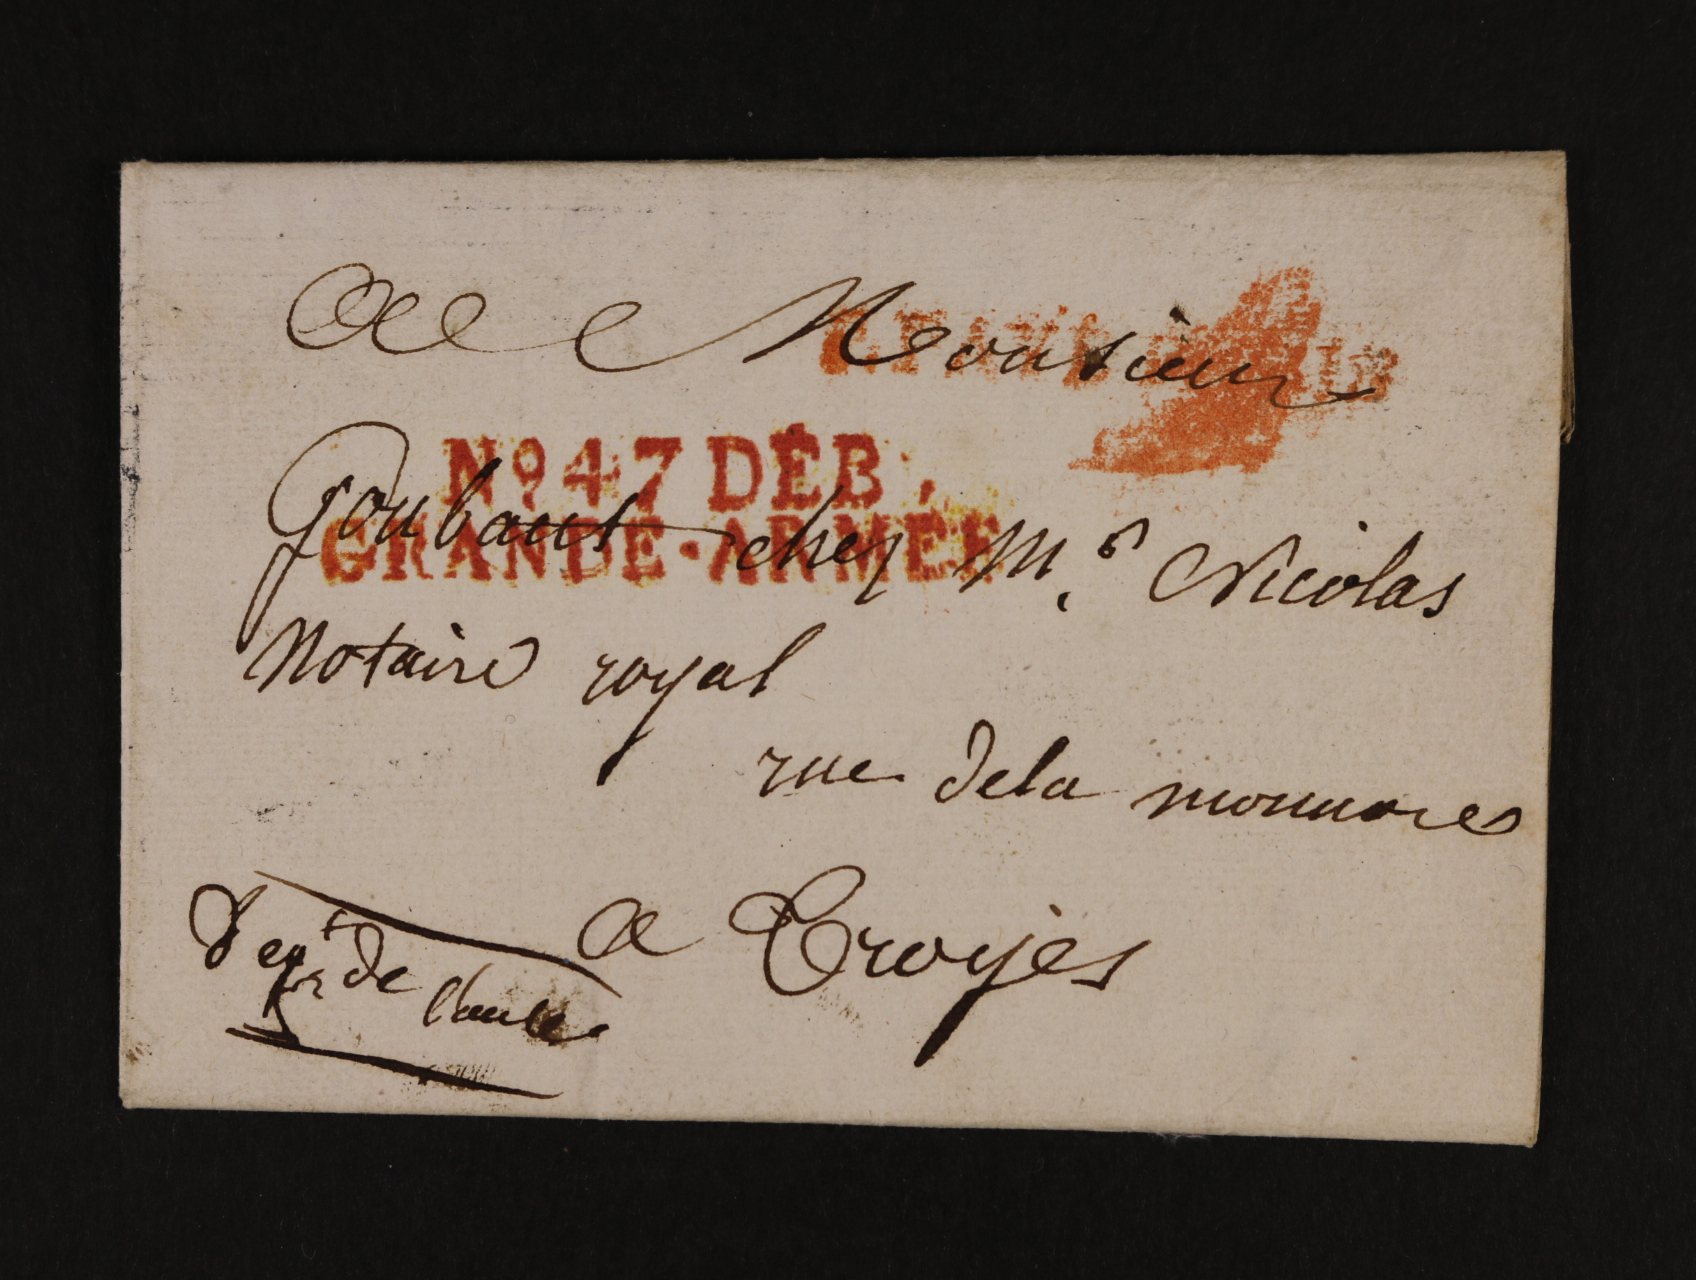 A Monsieur
No. 47 DÉB.
GRANDE-ARMÉE
Goubaut chez Mr. Nicolas
Notaire royal
rue dela monnoies
a Troyes
Dept de
l'aube